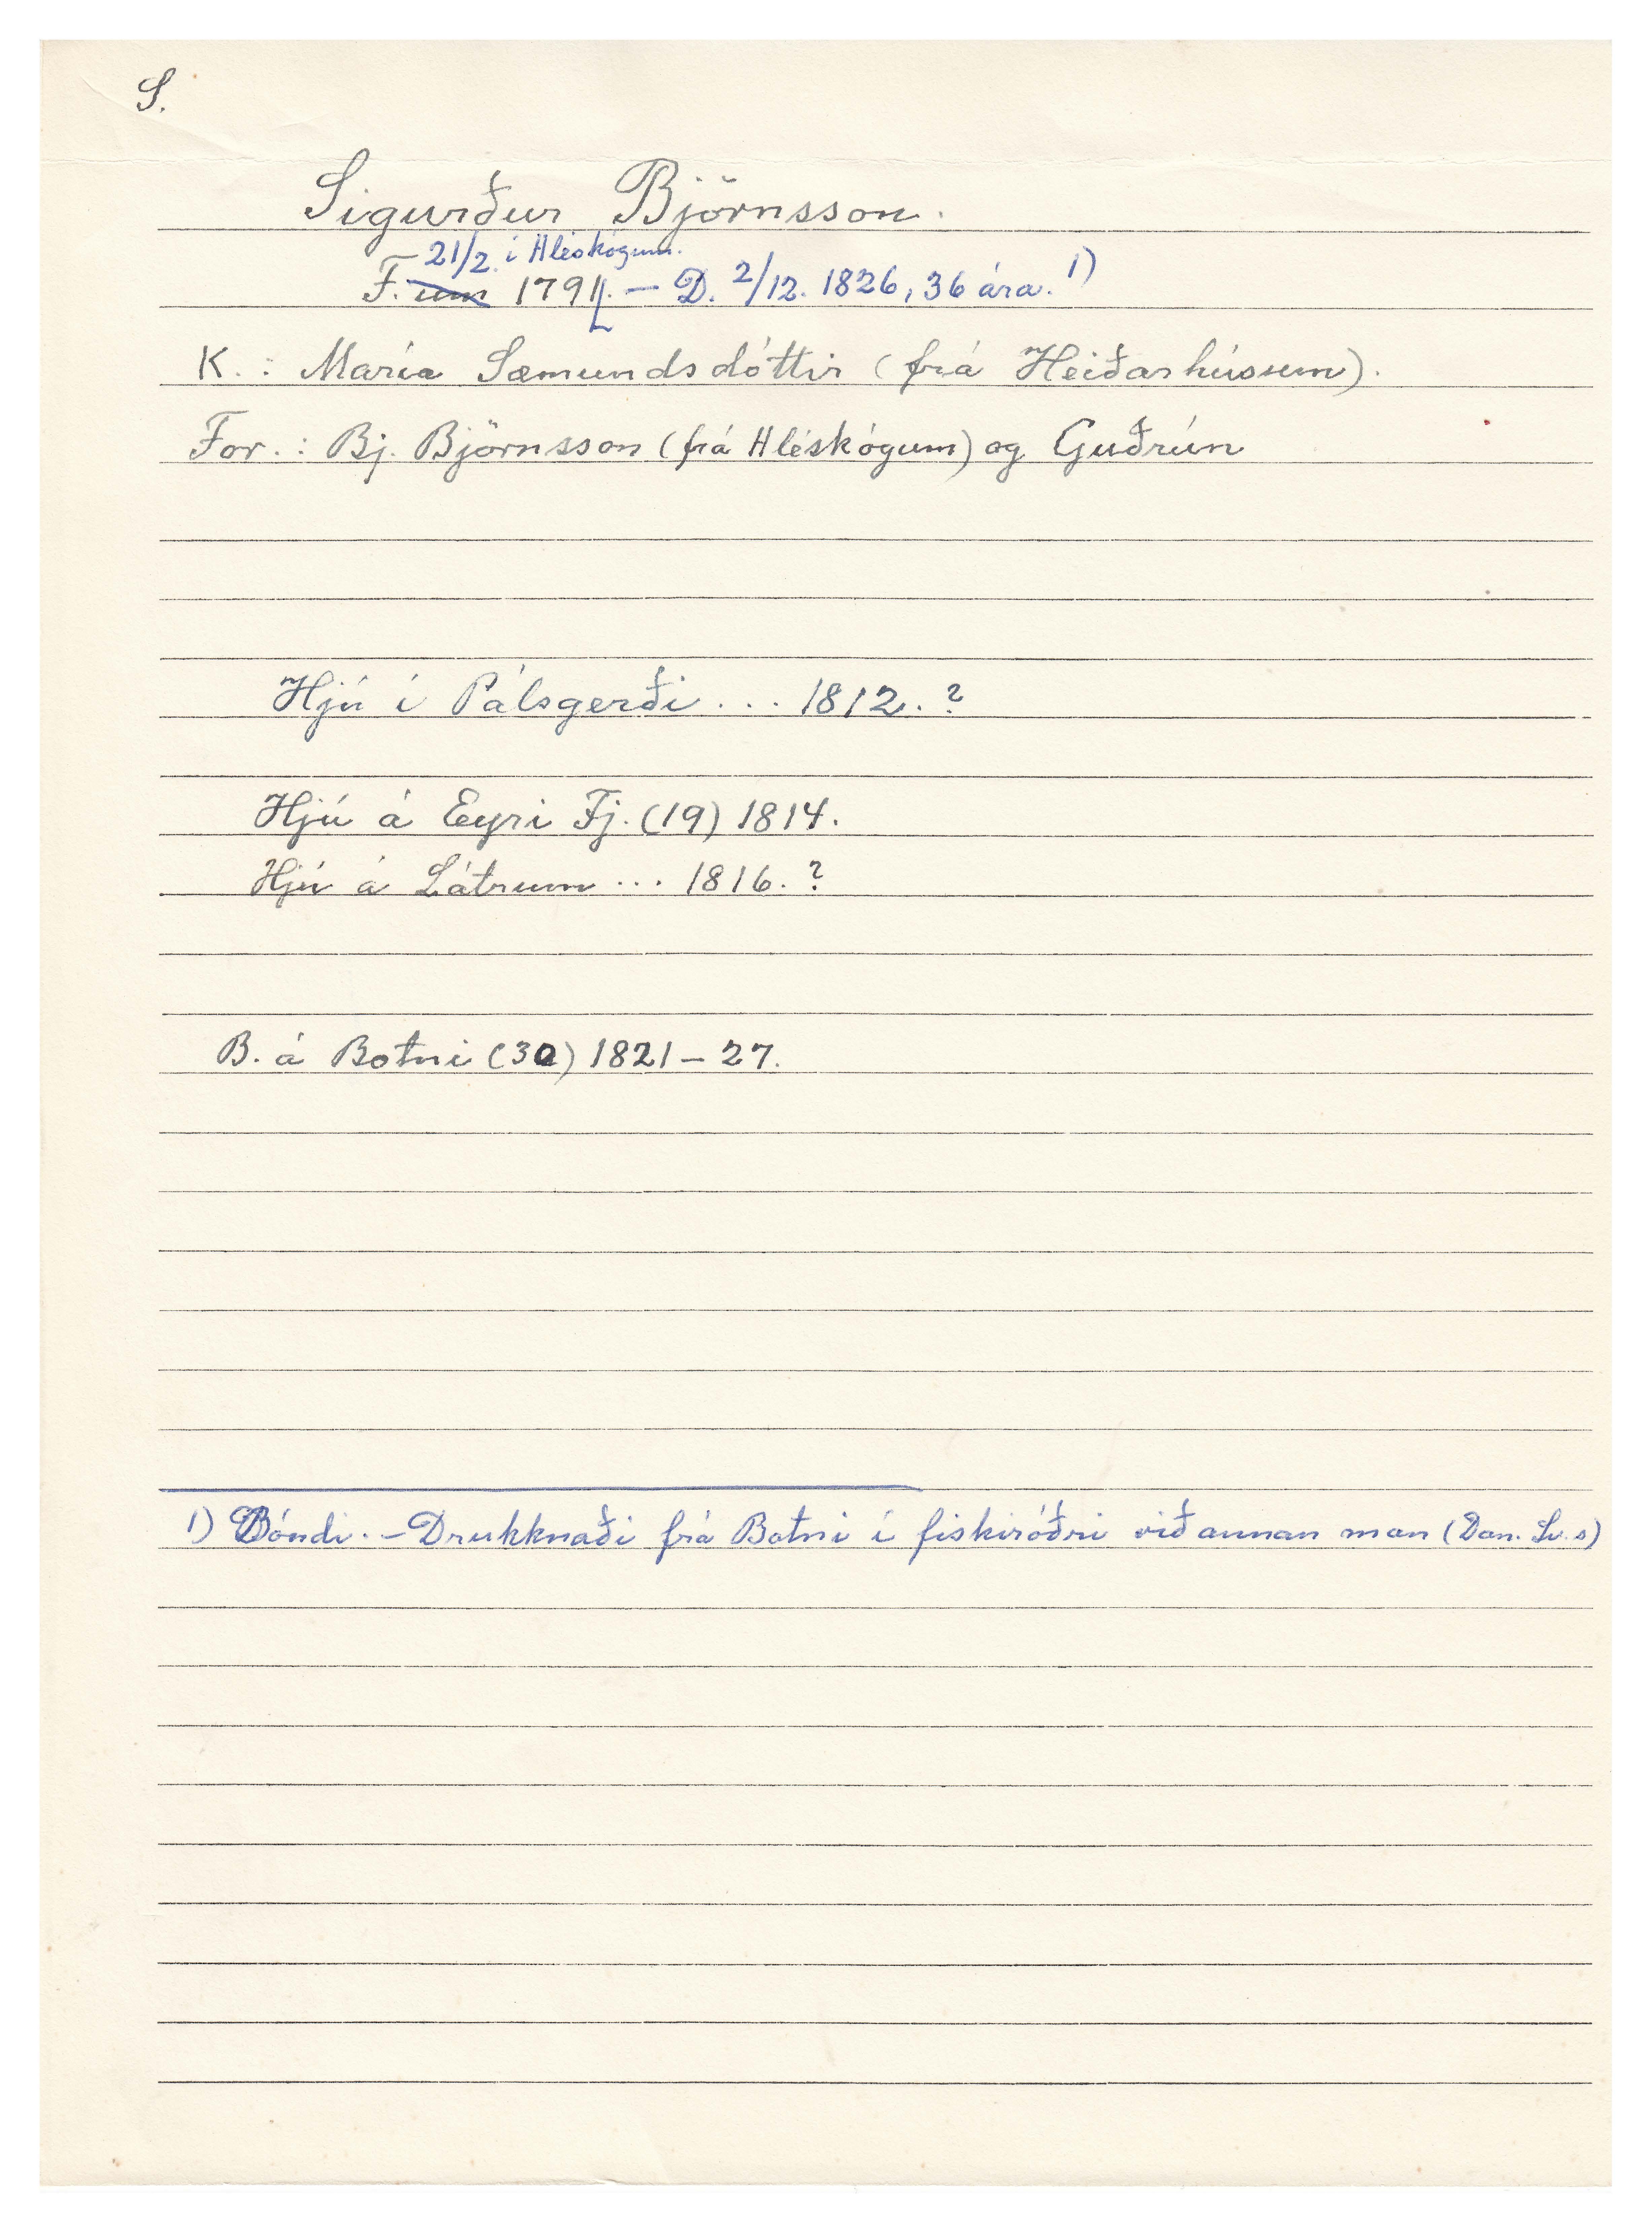 S.
Sigurður Björnsson.
21/2. í Hléskógum.
F. um 1791. – D. 2/12. 1826, 36 ára. 1)
K.: María Sæmundsdóttir (frá Heiðarhúsum).
For.: Bj. Björnsson (frá Hléskógum) og Guðrún
Hjú í Pálsgerði ... 1812. ?
Hjú á Eyri Fj. (19) 1814.
Hjú á Látrum ... 1816. ?
B. á Botni (30) 1821 – 27.
1) Bóndi. – Drukknaði frá Botni í fiskiróðri við annan man (Dan. Sv. s)